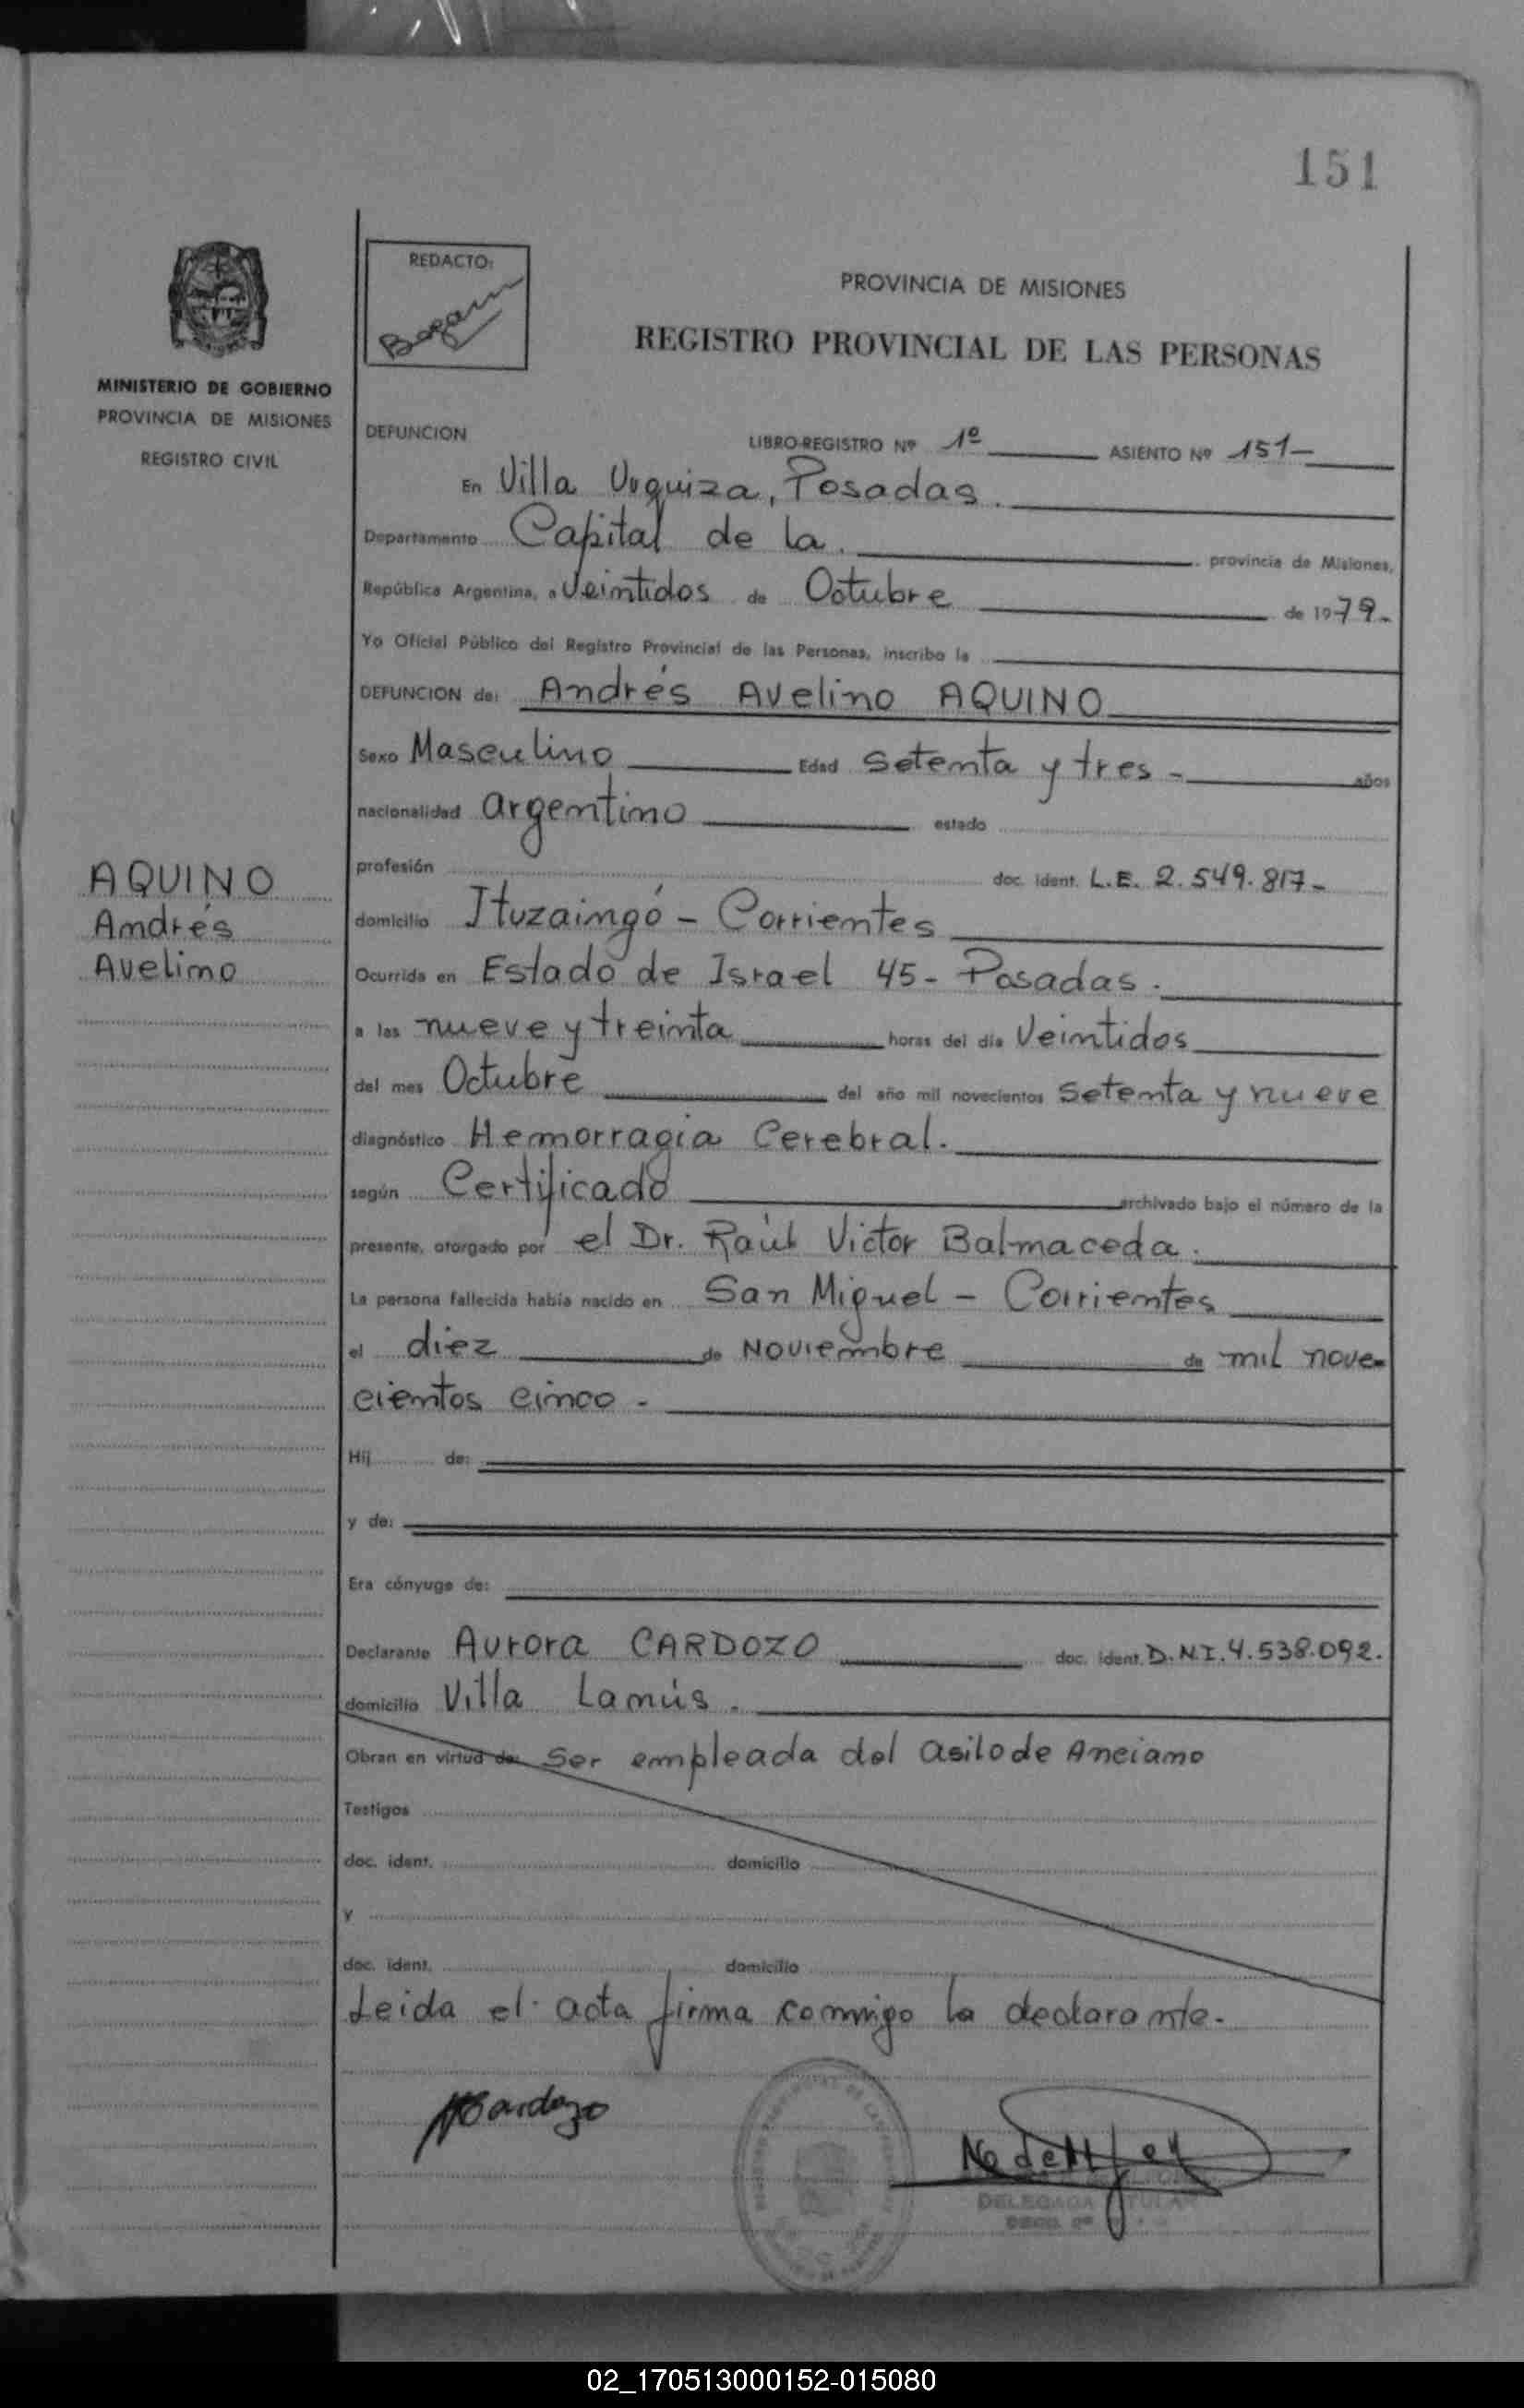 151
REDACTO:
PROVINCIA DE MISIONES
REGISTRO PROVINCIAL DE LAS PERSONAS
MINISTERIO DE GOBIERNO
PROVINCIA DE MISIONES
REGISTRO CIVIL
DEFUNCION LIBRO-REGISTRO Nº 1º ASIENTO Nº 151-
En Villa Urquiza, Posadas.
Departamento Capital de la. provincia de Misiones,
República Argentina, a Veintidos de Octubre de 1979-
Yo Oficial Público del Registro Provincial de las Personas, inscribo la
DEFUNCION de: Andrés Avelino AQUINO
Sexo Masculino Edad Setenta y tres - años
nacionalidad argentino estado
profesión doc. ident. L.E. 2.549.817-
AQUINO
Andrés
Avelino
domicilio Ituzaingó - Corrientes
Ocurrida en Estado de Israel 45- Posadas.
a las nueve y treinta horas del día Veintidos
del mes Octubre del año mil novecientos Setenta y nueve
diagnóstico Hemorragia Cerebral.
según Certificado archivado bajo el número de la
presente, otorgado por el Dr. Raúl Victor Balmaceda.
La persona fallecida había nacido en San Miguel - Corrientes
el diez de Noviembre de mil nove-
cientos cinco -
Hij de:
y de:
Era cónyuge de:
Declarante Aurora CARDOZO doc. ident. D.N.I. 4.538.092.
domicilio Villa Lanús.
Obran en virtud de: Ser empleada del asilo de Anciano
Testigos
doc. ident. domicilio
y
doc. ident. domicilio
Leida el acta firma conmigo la declarante.
Cardozo
DELEGADA TITULAR
02_170513000152-015080